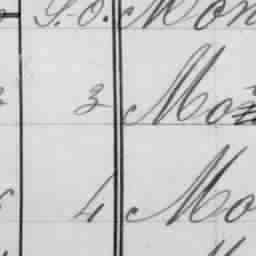 S.O. Mon
3 Mo
4 Mo